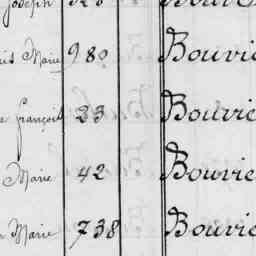 Joseph
is Marie 980 Bouvie
e françois 23 Bouvie
Marie 42 Bouvie
Marie 738 Bouvie